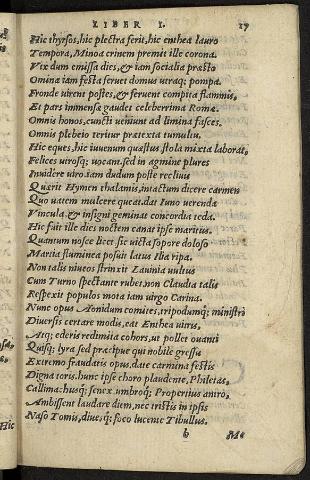 LIBER I. 17
Hic thyrsos, hic plectra ferit, hic enthea lauro
Tempora, Minoa crinem premit ille corona.
Vix dum emissa dies, & iam socialia præsto
Omina iam festa feruet domus utraq; pompa.
Fronde uirent postes, & feruent compita flammis,
Et pars immensæ gaudet celeberrima Romæ.
Omnis honos, cuncti ueniunt ad limina fasces.
Omnis plebeio teritur prætexta tumultu.
Hic eques, hic iuuenum quæstus stola mixta laborat,
Felices utrosq; uocant. sed in agmine plures
Inuidêre uiro. iam dudum poste recliui
Quærit Hymen thalamis, intactum dicere carmen
Quo uatem mulcere queat. dat Iuno uerenda
Vincula, & insigni geminat concordia teda.
Hic fuit ille dies noctem canat ipse maritus.
Quantum nosce licet. sic uicta sopore doloso
Martia fluminea posuit latus Ilia ripa.
Non talis niueos strinxit Lauinia uultus
Cum Turno spectante rubet, non Claudia talis
Respexit populos mota iam uirgo Carina.
Nunc opus Aonidum comites, tripodumq; ministri
Diuersis certare modis, eat Enthea uitris,
Atq; ederis redimita cohors, ut pollet ouanti
Quisq; lyra sed præcipue qui nobile gressu
Extremo fraudatis opus, date carmina festis
Digna toris. hunc ipse choro plaudente, Philetas,
Callimachusq; senex. umbroq; Propertius antro,
Ambissent laudare diem, nec tristis in ipsis
Naso Tomis, diuesq; foco lucente Tibullus.
b Me